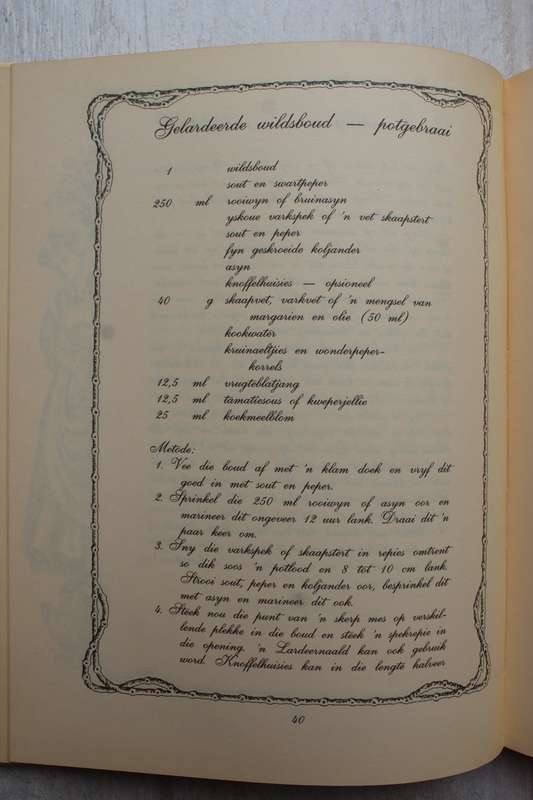 Gelardeerde wildsboud — potgebraai
1 wildsboud
sout en swartpeper
250 ml rooiwyn of bruinasyn
yskoue varkspek of 'n vet skaapstert
sout en peper
fyn geskroeide koljander
asyn
knoffelhuisies — opsioneel
40 g skaapvet, varkvet of 'n mengsel van
margarien en olie (50 ml)
kookwater
kruinaeltjies en wonderpeper-
korrels
12,5 ml vrugteblatjang
12,5 ml tamatiesous of kweperjellie
25 ml koekmeelblom
Metode:
1. Vee die boud af met 'n klam doek en vryf dit
goed in met sout en peper.
2. Sprinkel die 250 ml rooiwyn of asyn oor en
marineer dit ongeveer 12 uur lank. Draai dit 'n
paar keer om.
3. Sny die varkspek of skaapstert in repies omtrent
so dik soos 'n potlood en 8 tot 10 cm lank.
Strooi sout, peper en koljander oor, besprinkel dit
met asyn en marineer dit ook.
4. Steek nou die punt van 'n skerp mes op verskil-
lende plekke in die boud en steek 'n spekrepie in
die opening. 'n Lardeernaald kan ook gebruik
word. Knoffelhuisies kan in die lengte halveer
40